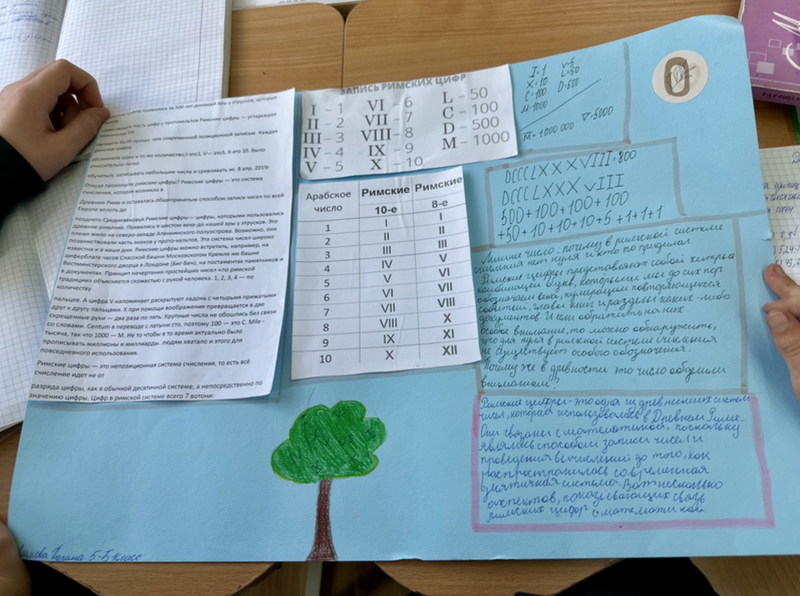 появились за 500 лет до нашей эры у этрусков, которые
Римские цифры — устаревшая
чем современной позиционной записью. Каждая
римская цифра
обозначала одно и то же количество,
обучиться, записывать небольшие числа и сравнивать их. 8 апр. 2019г.
Откуда произошли римские цифры? Римские цифры — это система
счисления, которая возникла в
Древнем Риме и оставалась общепринятым способом записи чисел по всей
Европе вплоть до
позднего Средневековья. Римские цифры— цифры, которыми пользовались
древние римляне. Появились в шестом веке до нашей эры у этрусков. Это
племя жило на северо-западе Апеннинского полуострова. Возможно, они
позаимствовали часть знаков у прото-кельтов. Эта система чисел широко
известна и в наши дни. Римские цифры можно встретить, например, на
циферблате часов Спасской башни Московского Кремля или башне
Вестминстерского дворца в Лондоне (Биг-Бен), на постаментах памятников и
в документах. Принцип начертания простейших чисел «по римской
традиции» объясняется схожестью с рукой человека. 1, 2, 3, 4 — по
количеству
пальцев. А цифра V напоминает раскрытую ладонь с четырьмя прижатыми
друг к другу пальцами. X при помощи воображения превращается в две
скрещённые руки — два раза по пять. Крупные числа не обошлись без связи
со словами. Centum в переводе с латыни сто, поэтому 100 — это С. Mile -
тысяча, так что 1000 — М. Не то чтобы в то время актуально было
прописывать миллионы и миллиарды: людям хватало и этого для
повседневного использования.
Римские цифры — это непозиционная система счисления, то есть всё
счисление идет не от
разряда цифры, как в обычной десятичной системе, а непосредственно по
значению цифры. Цифр в римской системе всего 7 вотони:
ЗАПИСЬ РИМСКИХ ЦИФР
I – 1 VI – 6 L – 50
II – 2 VII – 7 C – 100
III – 3 VIII – 8 D – 500
IV – 4 IX – 9 M – 1000
V – 5 X – 10
Арабское число Римские 10-е Римские 8-е
1 I I
2 II II
3 III III
4 IV V
5 V VI
6 VI VII
7 VII VIII
8 VIII X
9 IX XI
10 X XII
I=1 V=5
X=10 L=50
C=100 D=500
M=1000
=1000 000 =5000
0
DCCCLXXXVIII=800
DCCCLXXXVIII
500+100+100+100
+50+10+10+10+5+1+1+1
число. почему в римской системе
счисления нет нуля и кто то придумал
Римские цифры представляют собой хитрые
комбинации букв, которыми мы до сих пор
обозначаем века, нумерацию повторяющихся
событий, главы книг и разделы каких-либо
документов. И если обратить на них
особое внимание, то можно обнаружить,
что для нуля в римской системе счисления
не существует особого обозначения.
Почему же в древности это число обделили
вниманием?
Римские цифры-это одна из древнейших систем
чисел, которая использовалась в Древнем Риме.
Они связаны с математикой, поскольку
являлись способом записи чисел и
проведения вычислений до того, как
распространилась современная
десятичная система. Вот несколько
аспектов, показывающих связь
римских цифр с математикой
5-Б класс